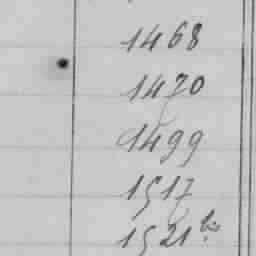 1468
1470
1499
1517
1521 bis